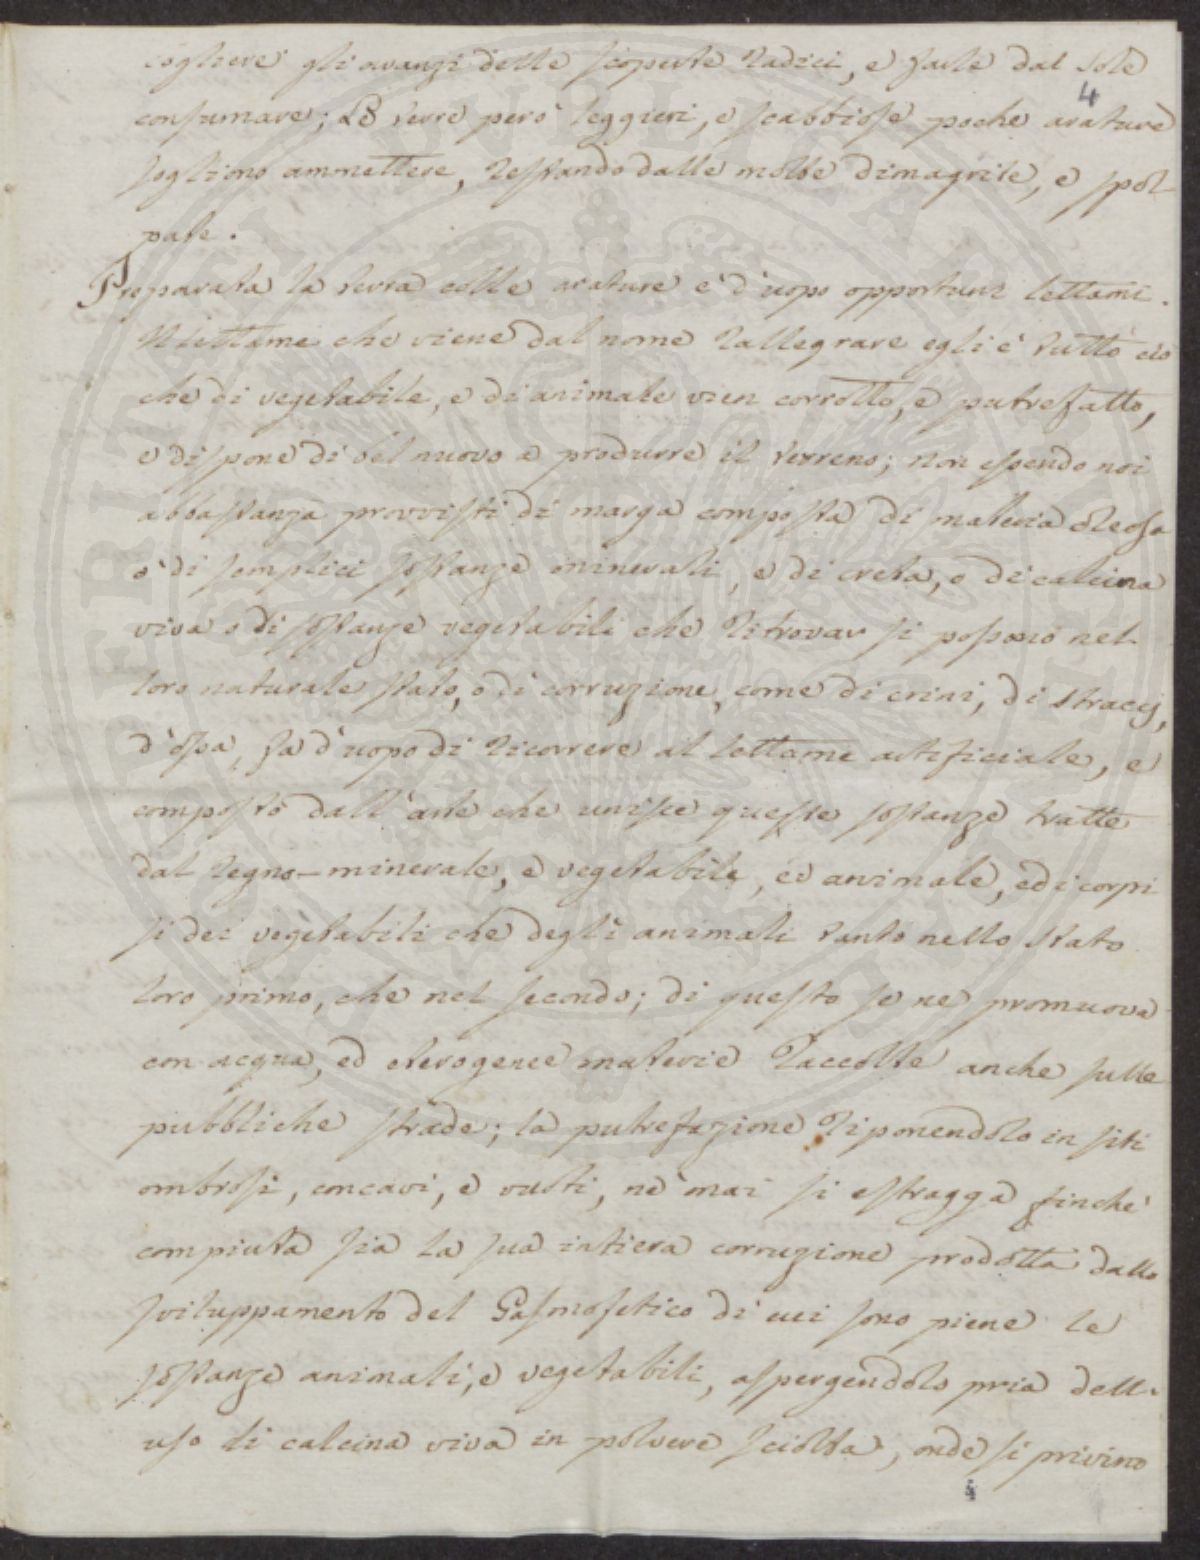 cogliere gli avanzi delle scoperte radici, e farle dal sole
4
consumare; Le terre però leggieri, e scabbiose poche arature
sogliono ammettere, restando dalle molte dimagrite, e spol-
pate.
Preparata la terra colle arature è d'uopo opportuni lettami.
Il lettame che viene dal nome rallegrare egli è tutto ciò
che di vegetabile, e di animale vien corrotto, e putrefatto,
e dispone di bel nuovo a produrre il terreno; non essendo noi
abbastanza provvisti di marga composta di materia oleosa
o di semplici sostanze minerali, e di creta, o di calcina
viva o di sostanze vegetabili che ritrovar si possono nel
loro naturale stato, o di corruzione, come di crini, di stracij,
d'ossa, fa d'uopo di ricorrere al lettame artificiale, e
composto dall'arte che unisce queste sostanze tratte
dal regno minerale, e vegetabile, ed animale, ed i corpi
sì dei vegetabili che degli animali tanto nello stato
loro primo, che nel secondo; di questo se ne promuova
con acqua, ed eterogenee materie raccolte anche sulle
pubbliche strade; la putrefazione riponendolo in siti
ombrosi, concavi, e vasti, nè mai si estragga finchè
compiuta sia la sua intiera corruzione prodotta dallo
sviluppamento del Gasmofetico di cui sono piene le
sostanze animali, e vegetabili, aspergendolo pria dell'
uso di calcina viva in polvere sciolta, onde si privino